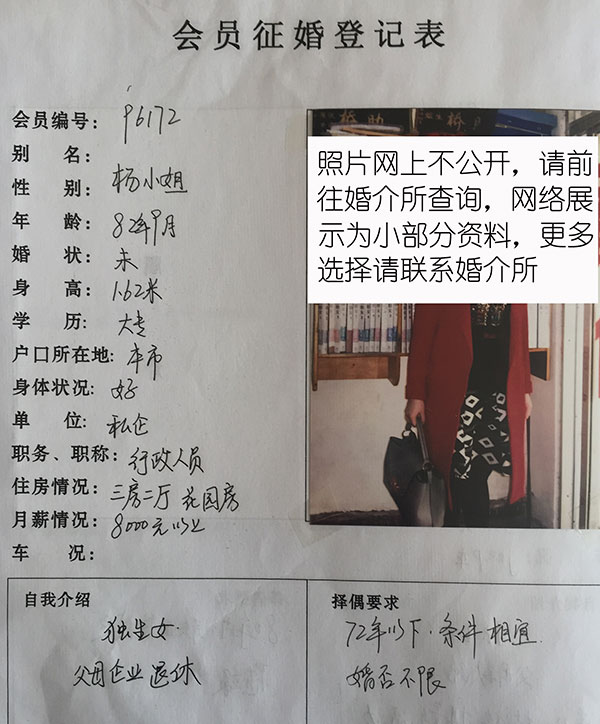 会员征婚登记表
会员编号: P6172
别 名:
性 别: 杨小姐
年 龄: 82年9月
婚 状: 未
身 高: 1.62米
学 历: 大专
户口所在地: 本市
身体状况: 好
单 位: 私企
职务、职称: 行政人员
住房情况: 三房二厅 花园房
月薪情况: 8000元以上
车 况:
照片网上不公开，请前
往婚介所查询，网络展
示为小部分资料，更多
选择请联系婚介所
自我介绍
独生女.
父母企业退休
择偶要求
72年以下.条件相宜
婚否不限